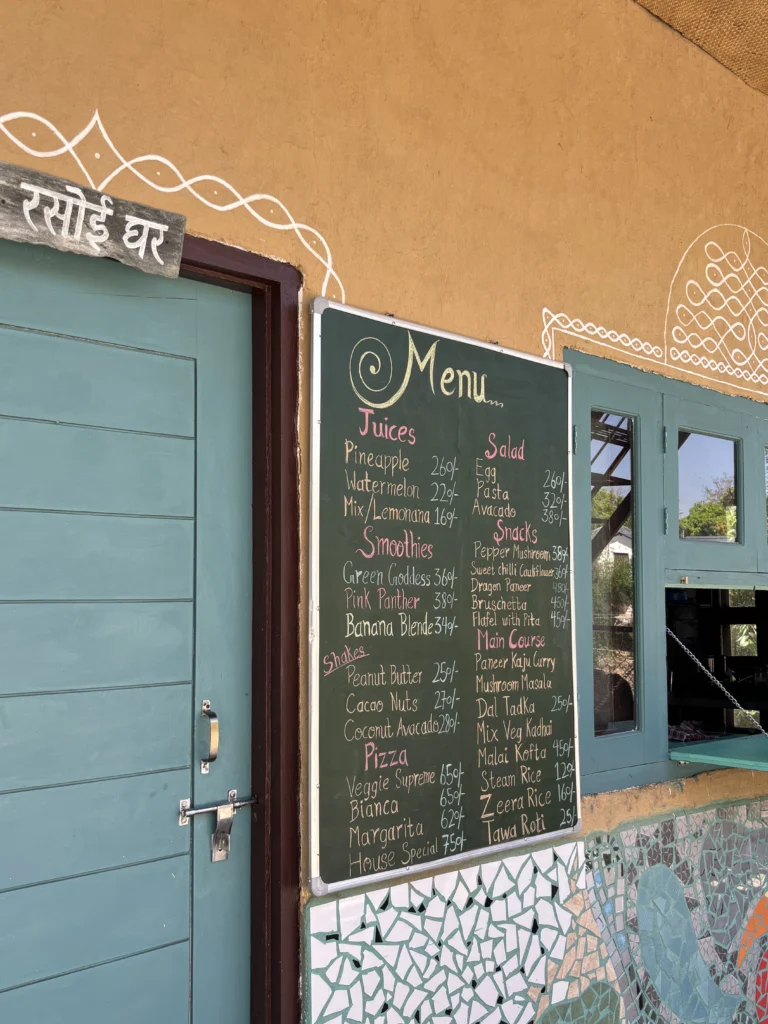 रसोई घर
Menu...
Juices
Pineapple 260/-
Watermelon 220/-
Mix/Lemonana 160/-
Smoothies
Green Goddess 360/-
Pink Panther 380/-
Banana Blende 340/-
Shakes
Peanut Butter 250/-
Cacao Nuts 270/-
Coconut Avacado 280/-
Pizza
Veggie Supreme 650/-
Bianca 650/-
Margarita 620/-
House Special 750/-
Salad
Egg 260/-
Pasta 320/-
Avacado 380/-
Snacks
Pepper Mushroom 380/-
Sweet chilli Cauliflower
Dragon Paneer
Bruschetta 450/-
Flafel with Pita 450/-
Main Course
Paneer Kaju Curry
Mushroom Masala
Dal Tadka 250/-
Mix Veg Kadhai
Malai Kofta 450/-
Steam Rice 120/-
Zeera Rice 160/-
Tawa Roti 25/-